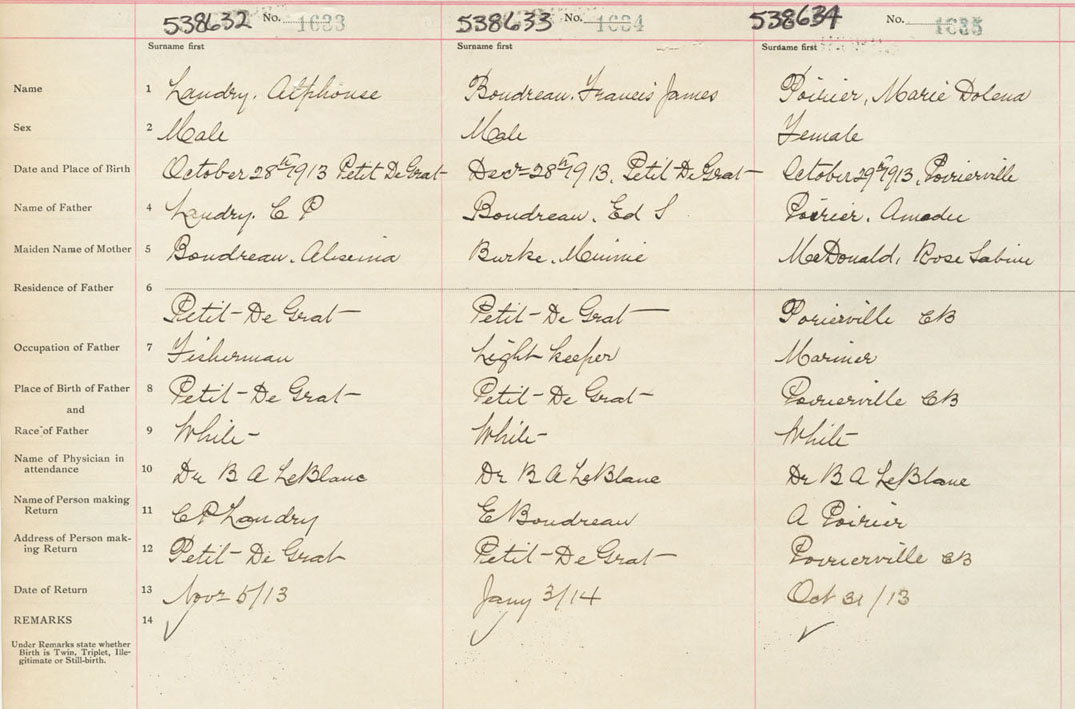 538632 No. 1633 538633 No. 1634 538634 No. 1635
Surname first Surname first Surname first
Name 1 Landry, Alphonse Boudreau, Francis James Poirier, Marie Dolena
Sex 2 Male Male Female
Date and Place of Birth 3 October 28th 1913 Petit De Grat Decr 28th 1913, Petit De Grat October 29th 1913, Poirierville
Name of Father 4 Landry, C P Boudreau, Ed S Poirier, Amedee
Maiden Name of Mother 5 Boudreau, Burke, Minnie McDonald, Rose Sabine
Residence of Father 6
Petit-De Grat Petit-De Grat Porierville CB
Occupation of Father 7 Fisherman Light keeper Mariner
Place of Birth of Father 8 Petit-De Grat Petit-De Grat Poirierville CB
and
Race of Father 9 White White White
Name of Physician in
attendance 10 Dr B A LeBlanc Dr B A LeBlanc Dr B A LeBlanc
Name of Person making
Return 11 C P Landry E Boudreau A Poirier
Address of Person mak-
ing Return 12 Petit-De Grat Petit-De Grat Poirierville CB
Date of Return 13 Novr 5/13 Jany 3/14 Oct 31/13
REMARKS 14
Under Remarks state whether
Birth is Twin, Triplet, Ille-
gitimate or Still-birth.